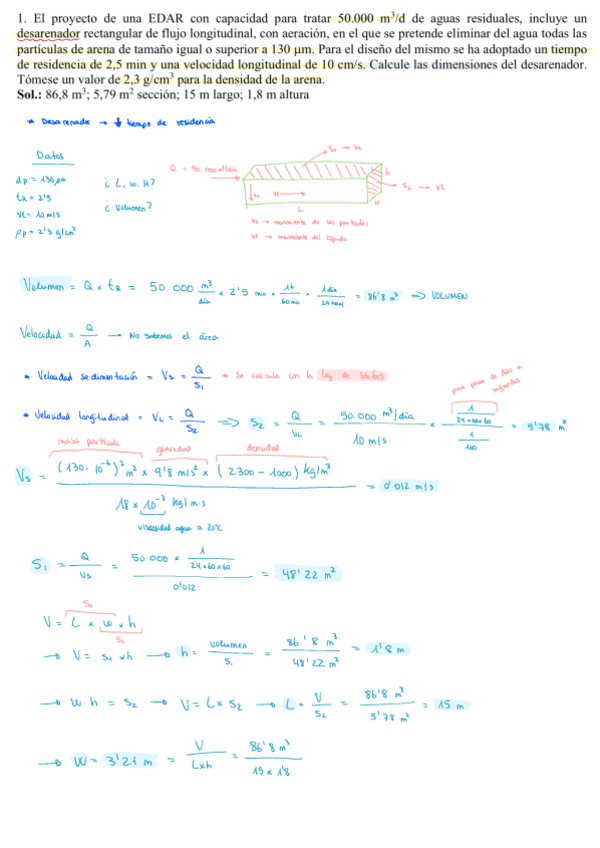 1. El proyecto de una EDAR con capacidad para tratar 50.000 m³/d de aguas residuales, incluye un
desarenador rectangular de flujo longitudinal, con aeración, en el que se pretende eliminar del agua todas las
partículas de arena de tamaño igual o superior a 130 μm. Para el diseño del mismo se ha adoptado un tiempo
de residencia de 2,5 min y una velocidad longitudinal de 10 cm/s. Calcule las dimensiones del desarenador.
Tómese un valor de 2,3 g/cm³ para la densidad de la arena.
Sol.: 86,8 m³; 5,79 m² sección; 15 m largo; 1,8 m altura
* Desarenador → ↓ tiempo de residencia
Datos
dp = 130 μm
tR = 2'5
vL = 10 m/s
ρp = 2'3 g/cm³
¿ L, w, H?
¿ Volumen?
Q = 50.000 m³/día
S₁ → Vs
h
S₂ → VL
w
L
vs → movimiento de las partículas
vL → movimiento del líquido
Volumen = Q × tR = 50.000 m³/día × 2'5 min × 1h/60 min × 1día/24 horas = 86'8 m³ ⇒ VOLUMEN
Velocidad = Q/A → No sabemos el área
* Velocidad sedimentación = Vs = Q/S₁ * Se calcula con la ley de Stokes
para pasar de días a segundos
* Velocidad longitudinal = VL = Q/S₂ ⇒ S₂ = Q/VL = 50.000 m³/día / 10 m/s × 1/24×60×60 / 1/100 = 5'78 m²
masa partícula gravedad densidad
Vs = (130·10⁻⁶)² m² × 9'8 m/s² × (2300 - 1000) kg/m³ / 18 × 10⁻³ kg/m·s = 0'012 m/s
viscosidad agua a 20ºC
S₁ = Q/Vs = 50 000 × 1/24×60×60 / 0'012 = 48'22 m²
V = L × w × h
→ V = S₁ × h → h = volumen/S₁ = 86'8 m³/48'22 m² = 1'8 m
→ w·h = S₂ → V = L × S₂ → L = V/S₂ = 86'8 m³/5'78 m² = 15 m
→ W = 3'21 m = V/L×h = 86'8 m³/15 × 1'8